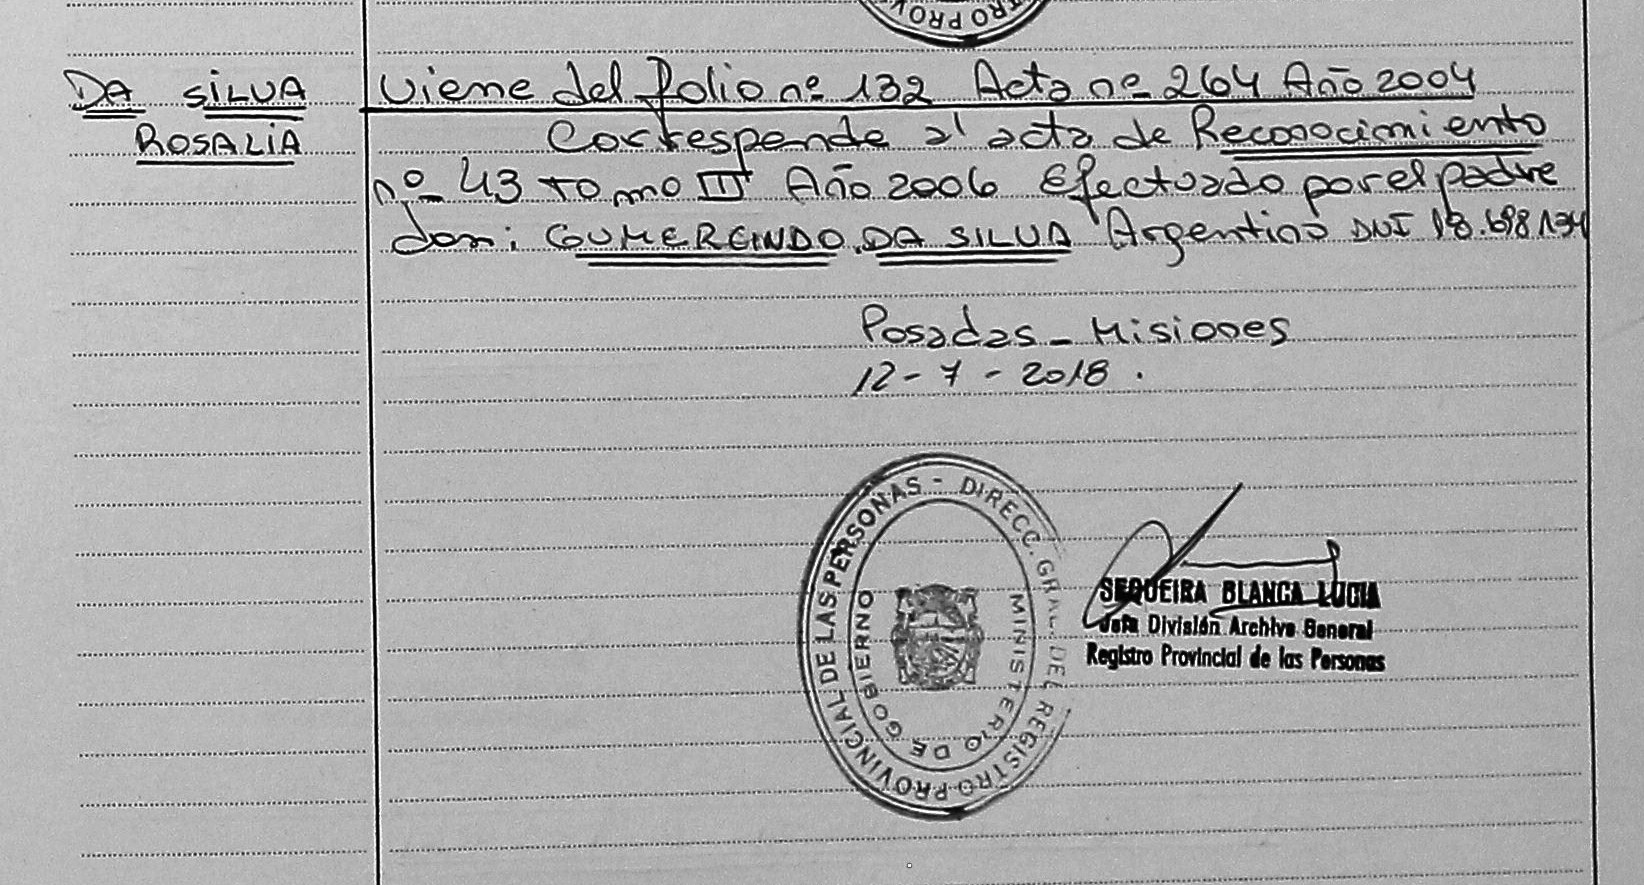 TRO PROV
DA SILVA
ROSALIA
Viene del Folio nº 132 Acta nº 264 Año 2004
Corresponde al acta de Reconocimiento
nº 43 tomo III Año 2006 Efectuado por el padre
don: GUMERCINDO DA SILVA Argentino DNI 18.698.134
Posadas - Misiones
12-7-2018.
DIRECC. GRAL. DEL REGISTRO PROVINCIAL DE LAS PERSONAS -
MINISTERIO DE GOBIERNO
SEQUEIRA BLANCA LUCIA
Jefa División Archivo General
Registro Provincial de las Personas